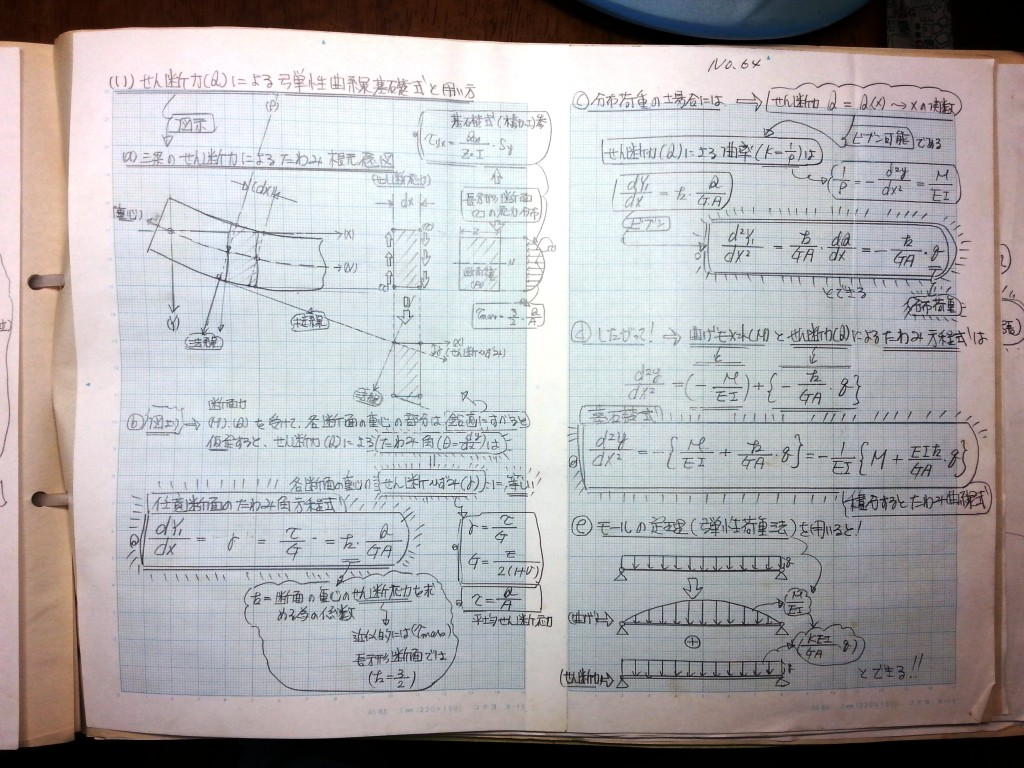 No. 64
(1) せん断力(Q)による弾性曲線基礎式と用い方
図示
(P)
基礎式(構力)参
τyx = Qx / Z・I ・ Sy
(a) 梁のせん断力によるたわみ概図
(せん断応力)
dx
dx
長方形断面
の応力分布
(重心)
(X)
(V)
断面積
(A)
τmax = 3/2 ・ Q/A
(Y)
法線
接線
(X)
(せん断ひずみ)
法線
断面力
(b) 図より → (M), (Q) を受けて、各断面の重心の部分は鉛直にすべると
仮定すると、せん断力(Q)によるたわみ角(θ = dy/dx)は
各断面の重心のせん断ひずみ(γ)に等しい!
任意断面のたわみ角方程式
dY₁/dx = γ = τ/G = k・Q/GA
γ = τ/G
G = E / 2(1+υ)
τ = Q/A
平均せん断応力
k = 断面の重心のせん断応力を求
める為の係数
近似的には(τmax)
長方形断面では
(k = 3/2)
(c) 分布荷重の場合には ⇒ せん断力 Q = Q(x) → xの関数
ビブン可能である
せん断力(Q)による曲率(K = 1/ρ)は
1/ρ = - d²y/dx² = M/EI
dY₁/dx = k・Q/GA
ビブン
d²Y₁/dx² = k/GA ・ dQ/dx = - k/GA ・ q
とできる
分布荷重
(d) したがって! → 曲げモーメント(M)とせん断力(Q)によるたわみ方程式は
d²y/dx² = (- M/EI) + {- k/GA ・ q}
基礎式
d²y/dx² = -{ M/EI + k/GA ・ q } = - 1/EI { M + EIk/GA q }
積分するとたわみ曲線式
(e) モールの定理(弾性荷重法)を用いると!
q
M/EI
(曲げ)⇒
⊕
(kEI/GA ・ q)
(せん断力)⇒
とできる!!